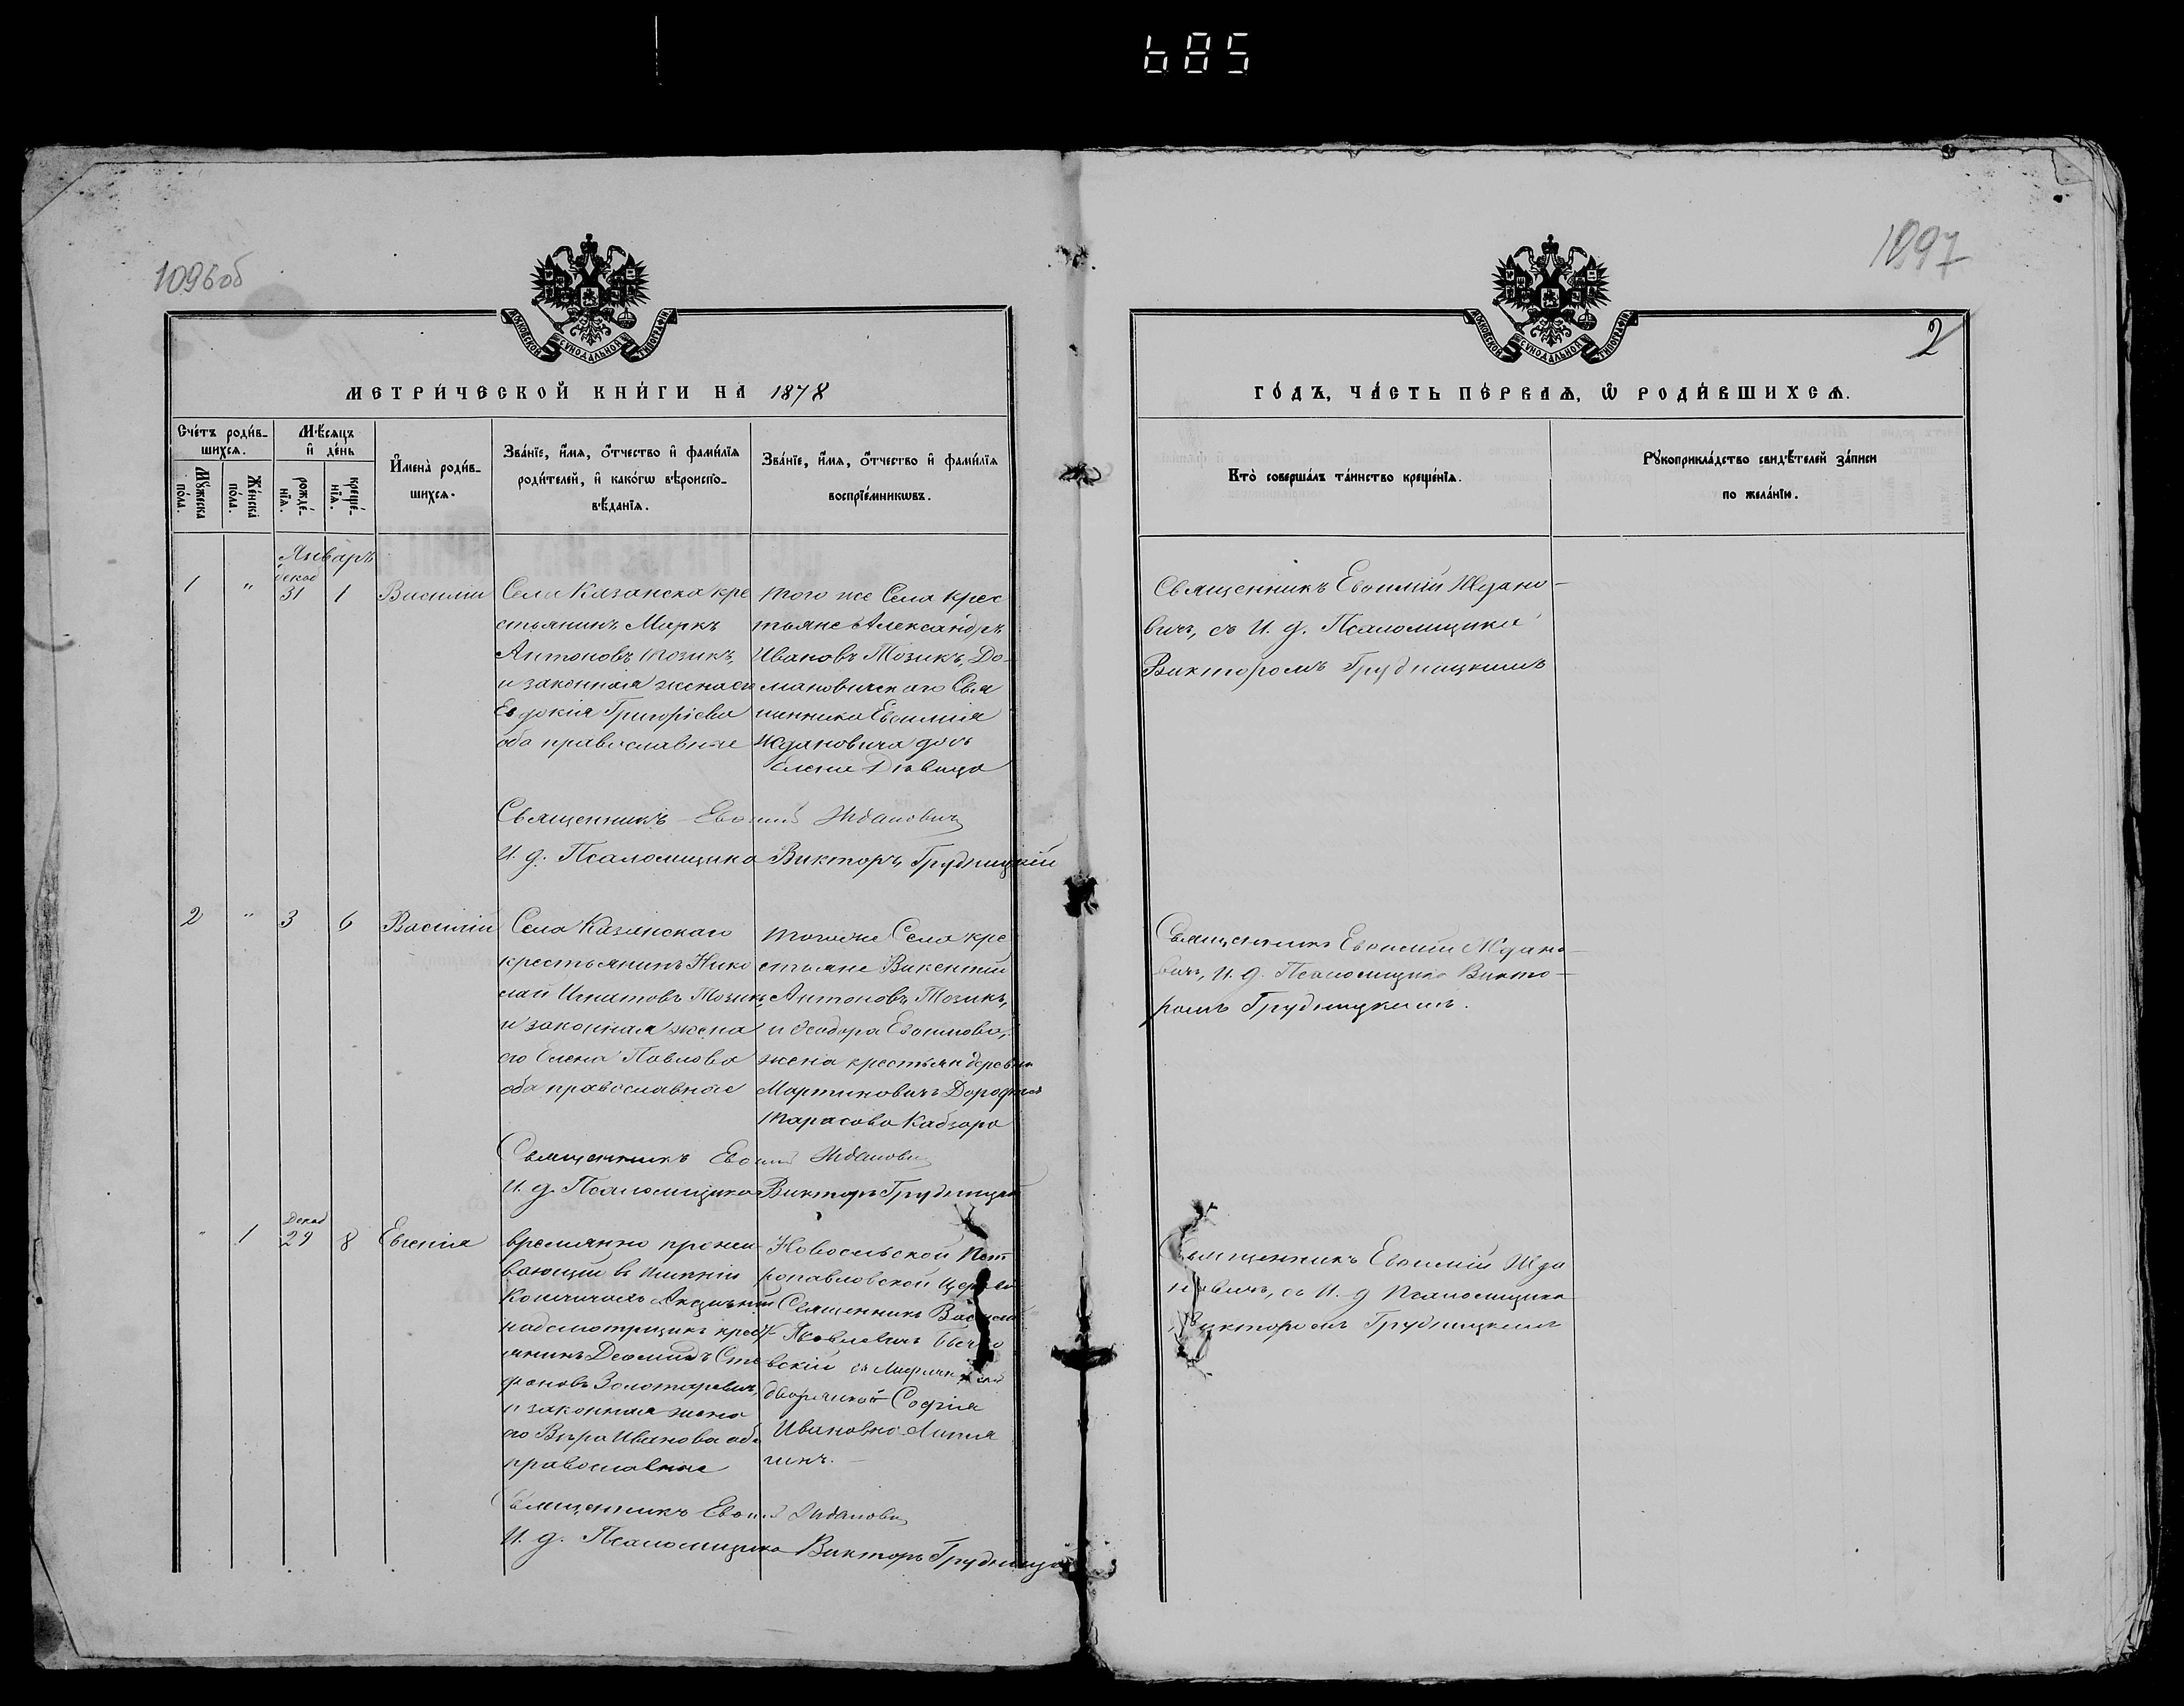 685
1096об
1097
2
МОСКОВСКОЙ СУНОДАЛЬНОЙ ТИПОГРАФІИ
МОСКОВСКОЙ СУНОДАЛЬНОЙ ТИПОГРАФІИ
МЕТРИ́ЧЕСКОЙ КНИ́ГИ НА 1878
Сче́тъ роди́в-
шихсѧ.
Мꙋ́жеска
по́ла.
Же́нска
по́ла.
Мѣ́сѧцъ
и҆ де́нь
рожде́-
нїѧ.
креще́-
нїѧ.
И҆мена̀ роди́в-
шихсѧ.
Зва́нїе, и҆́мѧ, ѻ҆́тчество и҆ фами́лїѧ
роди́телей, и҆ како́гѡ вѣроисповѣ-
ѣ́данїѧ.
Зва́нїе, и҆́мѧ, ѻ҆́тчество и҆ фами́лїѧ
воспрїе́мникѡвъ.
Январь
1 " декаб 31 1 Василий
Села Казанска кре
стьянинъ Маркъ
Антоновъ Тозикъ,
и законная жена его
Евдокія Григоріева
оба православные
того же Села крес
тьяне Александръ
Ивановъ Тозикъ, До-
мановичскаго Свя
щенника Евфимія
Ждановича дочь
Елена Дѣвица
Священникъ Евфимій Ждановичъ
И. д. Псаломщика Викторъ Грудницкій
2 " 3 6 Василій
Села Казанскаго
крестьянинъ Нико
лай Игнатовъ Тозикъ,
и законная жена
его Елена Павлова
оба православные
тогоже Села кре
стьяне Викентій
Антоновъ Тозикъ,
и Феодора Евфимова,
жена крестьян деревни
Мартиновичъ
Тарасова
Священникъ Евфимій Ждановичъ
И. д. Псаломщика Викторъ Грудницкій
" 1 Декаб 29 8 Евгенія
временно прожи-
вающій въ имѣніи
Акцизный
надсмотрщикъ крест
янинъ Сте
фановъ Золотаревичъ,
и законная жена
его Вѣра Иванова оба
православные
Новосельской Пет
ропавловской Церкви
Священникъ Василій
Яковлевичъ
вскій съ
дворянкой Софія
Ивановна
Священникъ Евфимій Ждановичъ
И. д. Псаломщика Викторъ Грудницкій
ГО́ДЪ, ЧА́СТЬ ПЕ́РВАѦ, Ѽ РОДИ́ВШИХСѦ.
Кто̀ соверша́лъ та́инство креще́нїѧ.
Рꙋкоприкла́дство свидѣ́телей за́писи
по жела́нїю.
Священникъ Евфимій Ждано-
вичъ, съ И. д. Псаломщика
Викторомъ Грудницкимъ
Священникъ Евфимій Ждано-
вичъ, И. д. Псаломщика Викто-
ромъ Грудницкимъ.
Священникъ Евфимій Жда
новичъ, съ И. д Псаломщика
Викторомъ Грудницкимъ